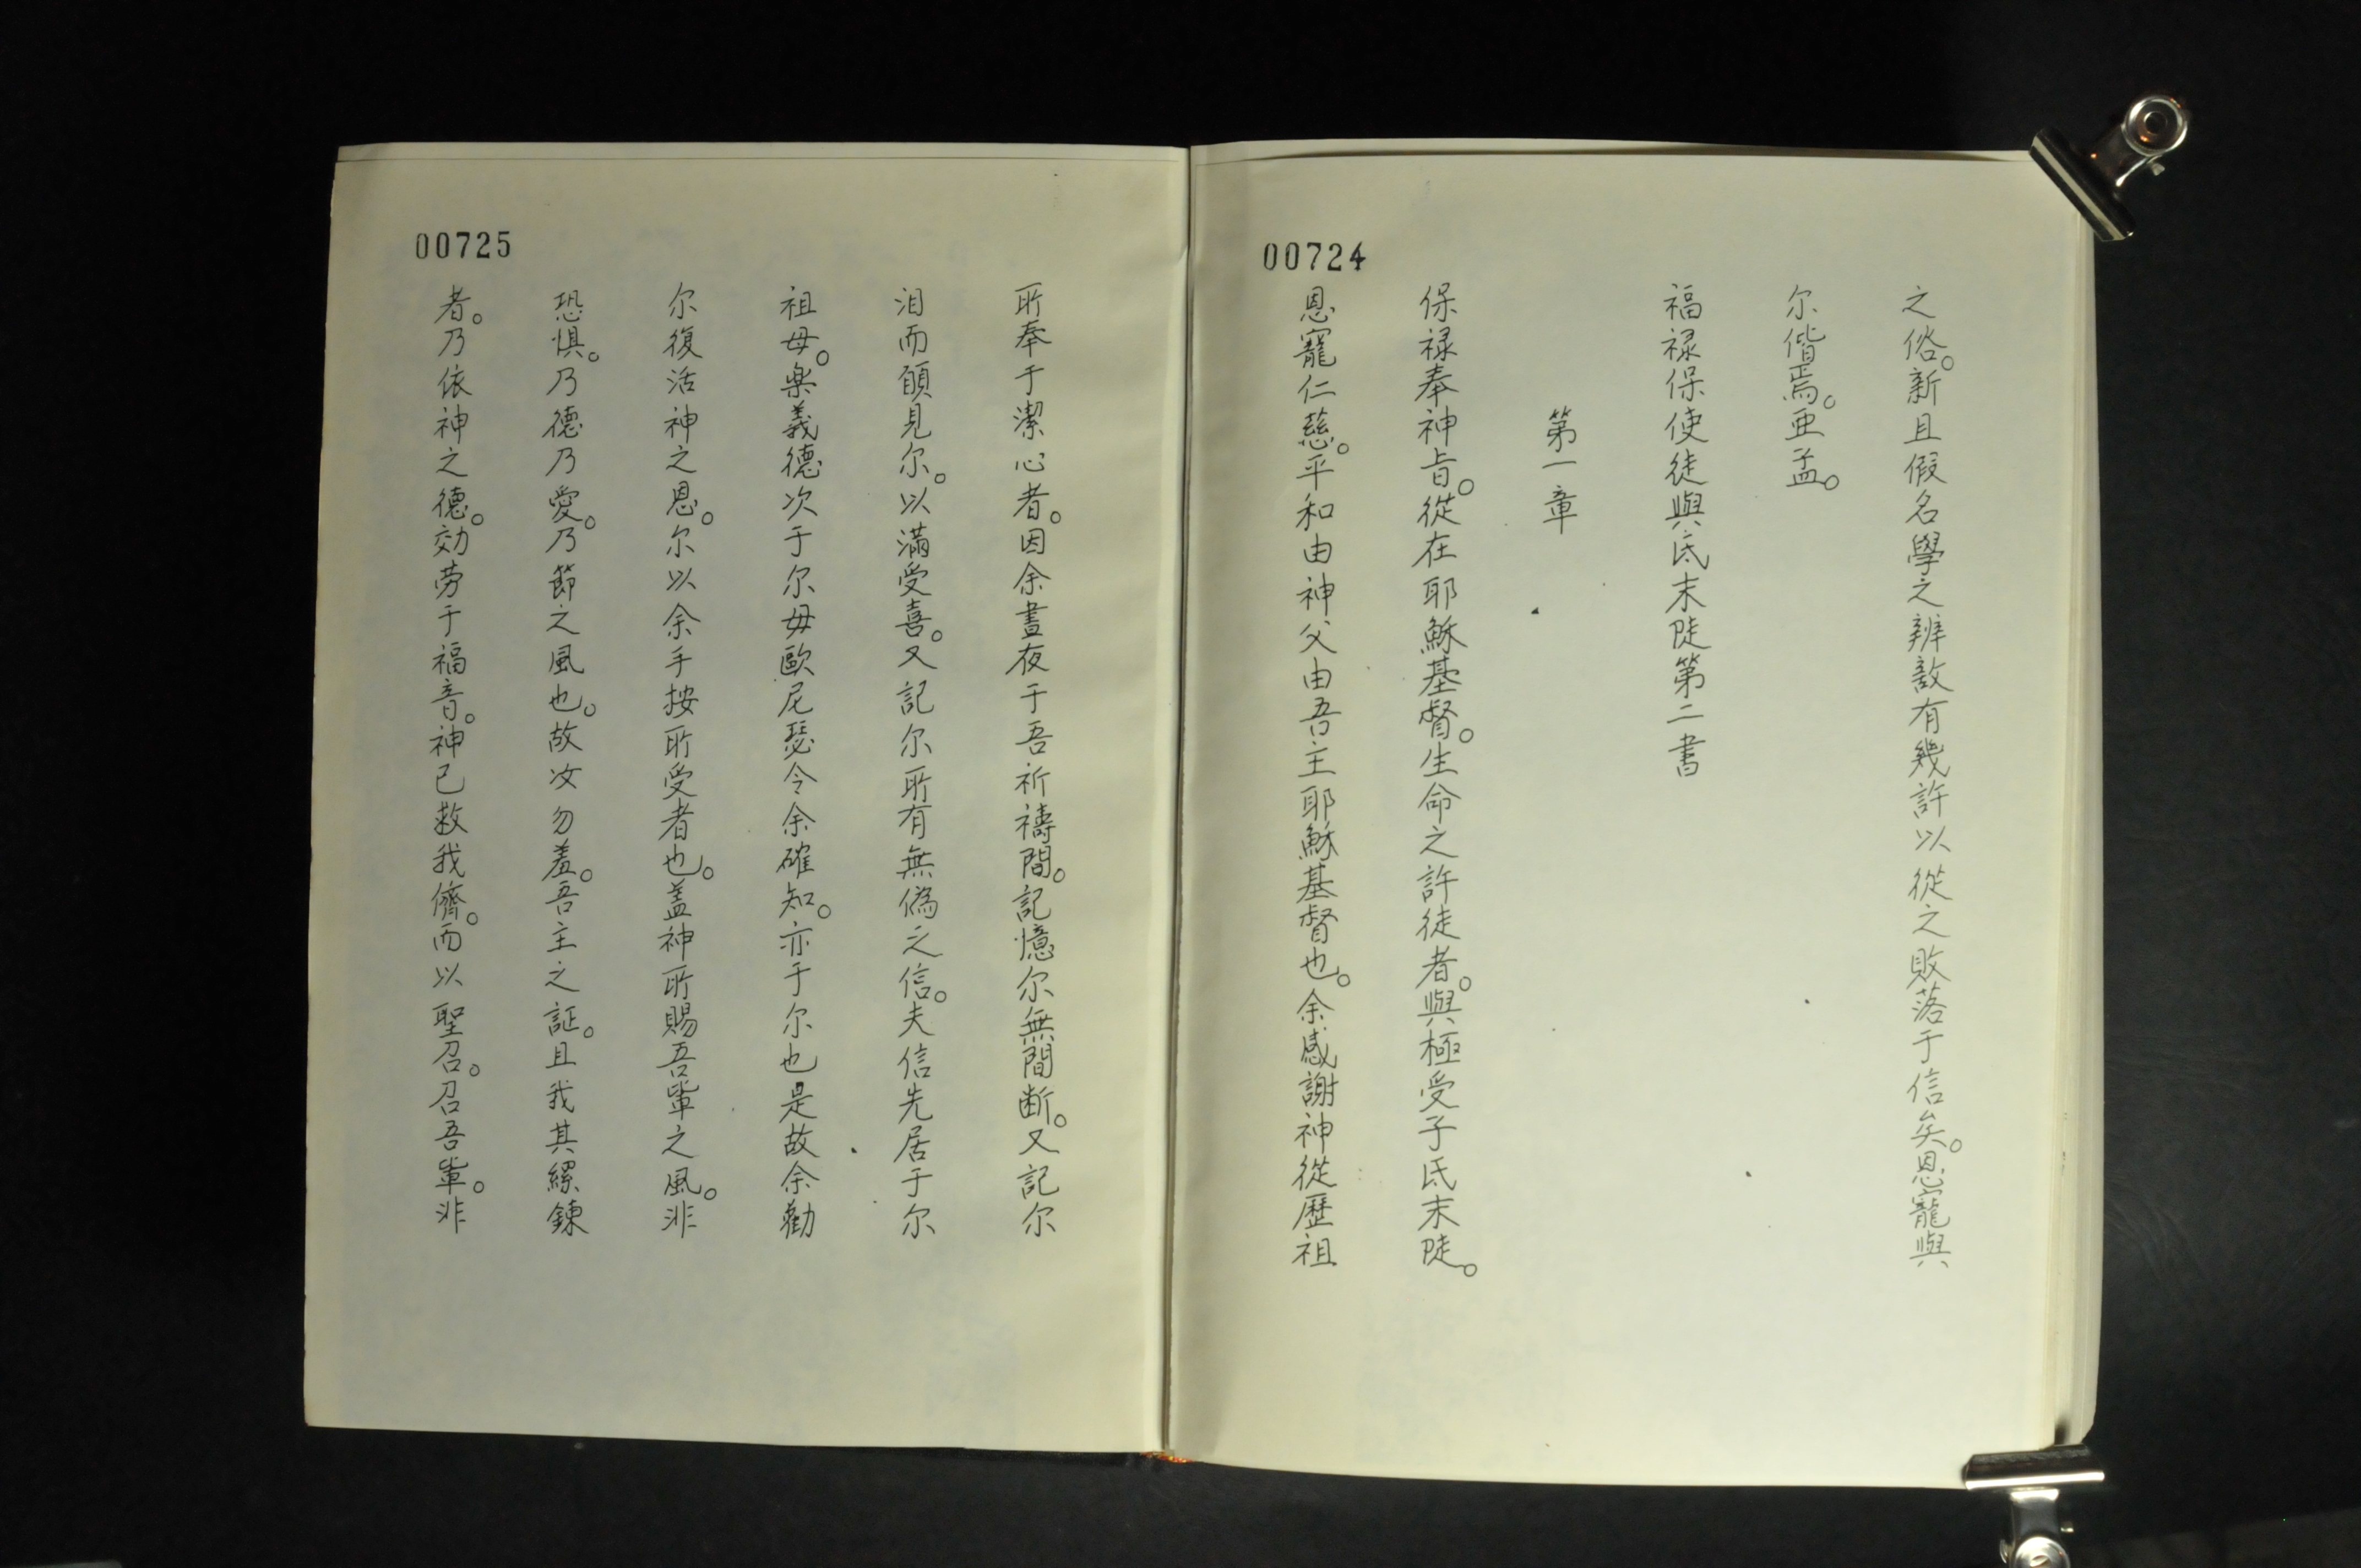 00724
之俗。新且假名學之辨敵有幾許以從之敗落于信矣。恩寵與
尔偕焉。亜孟。
福禄保使徒與氐末陡第二書
第一章
保禄奉神旨。從在耶穌基督。生命之許徒者。與極受子氐末陡。
恩寵仁慈。平和由神父由吾主耶穌基督也。余感謝神從歷祖
00725
所奉于潔心者。因余晝夜于吾祈禱間。記憶尔無間断。又記尔
泪而願見尔。以滿受喜。又記尔所有無偽之信。夫信先居于尔
祖母。楽義德次于尔母歐尼瑟令余確知。亦于尔也是故余勸
尔復活神之恩。尔以余手按所受者也。盖神所賜吾軰之風。非
恐惧。乃德乃愛。乃節之風也。故汝勿羞。吾主之証。且我其縲鍊
者。乃依神之德。効劳于福音。神已救我儕。而以聖召。召吾軰。非